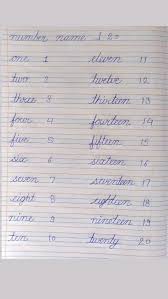 number name 1 20
one 1 eleven 11
two 2 twelve 12
three 3 thirteen 13
four 4 fourteen 14
five 5 fifteen 15
six 6 sixteen 16
seven 7 seventeen 17
eight 8 eighteen 18
nine 9 nineteen 19
ten 10 twenty 20